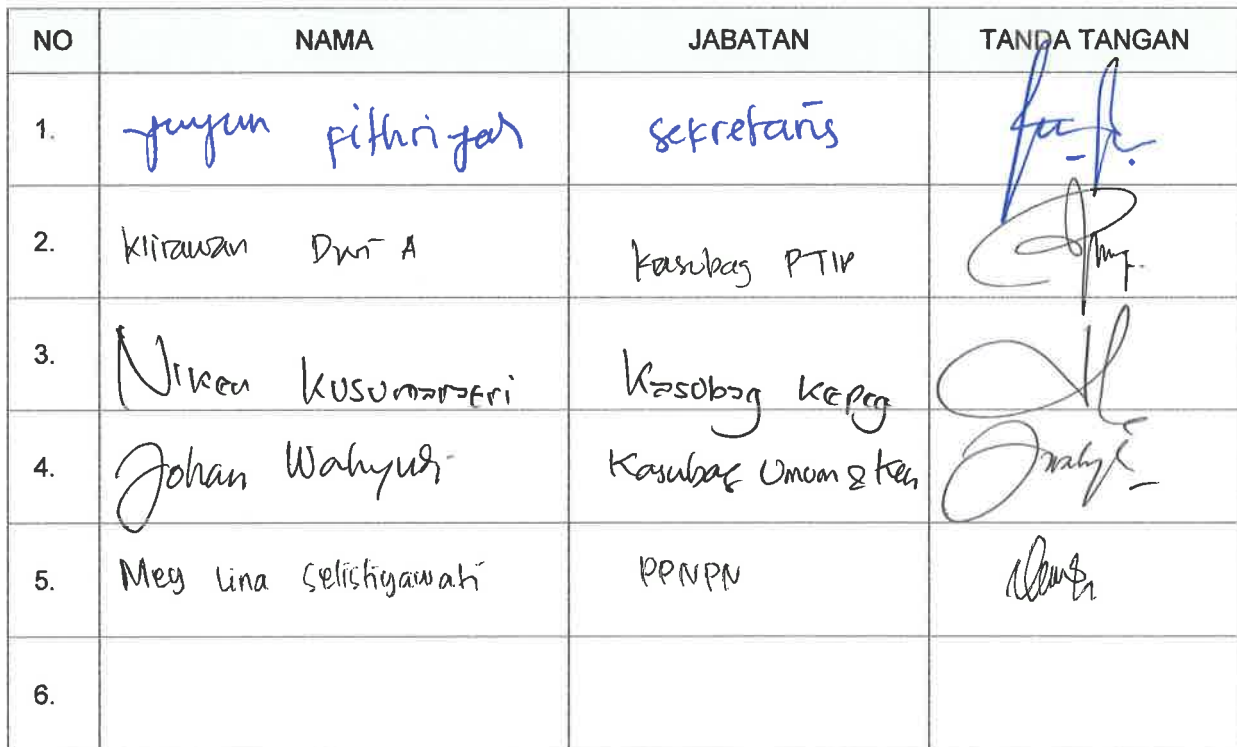 NO NAMA JABATAN TANDA TANGAN
1. Yuyun Fithriyah Sekretaris
2. Kurawan Dwi A Kasubag PTIP
3. Niken Kusumarseri Kasubag Kepeg
4. Johan Wahyudi Kasubag Umum & Keu
5. Mey Lina Selistiyawati PPNPN
6.